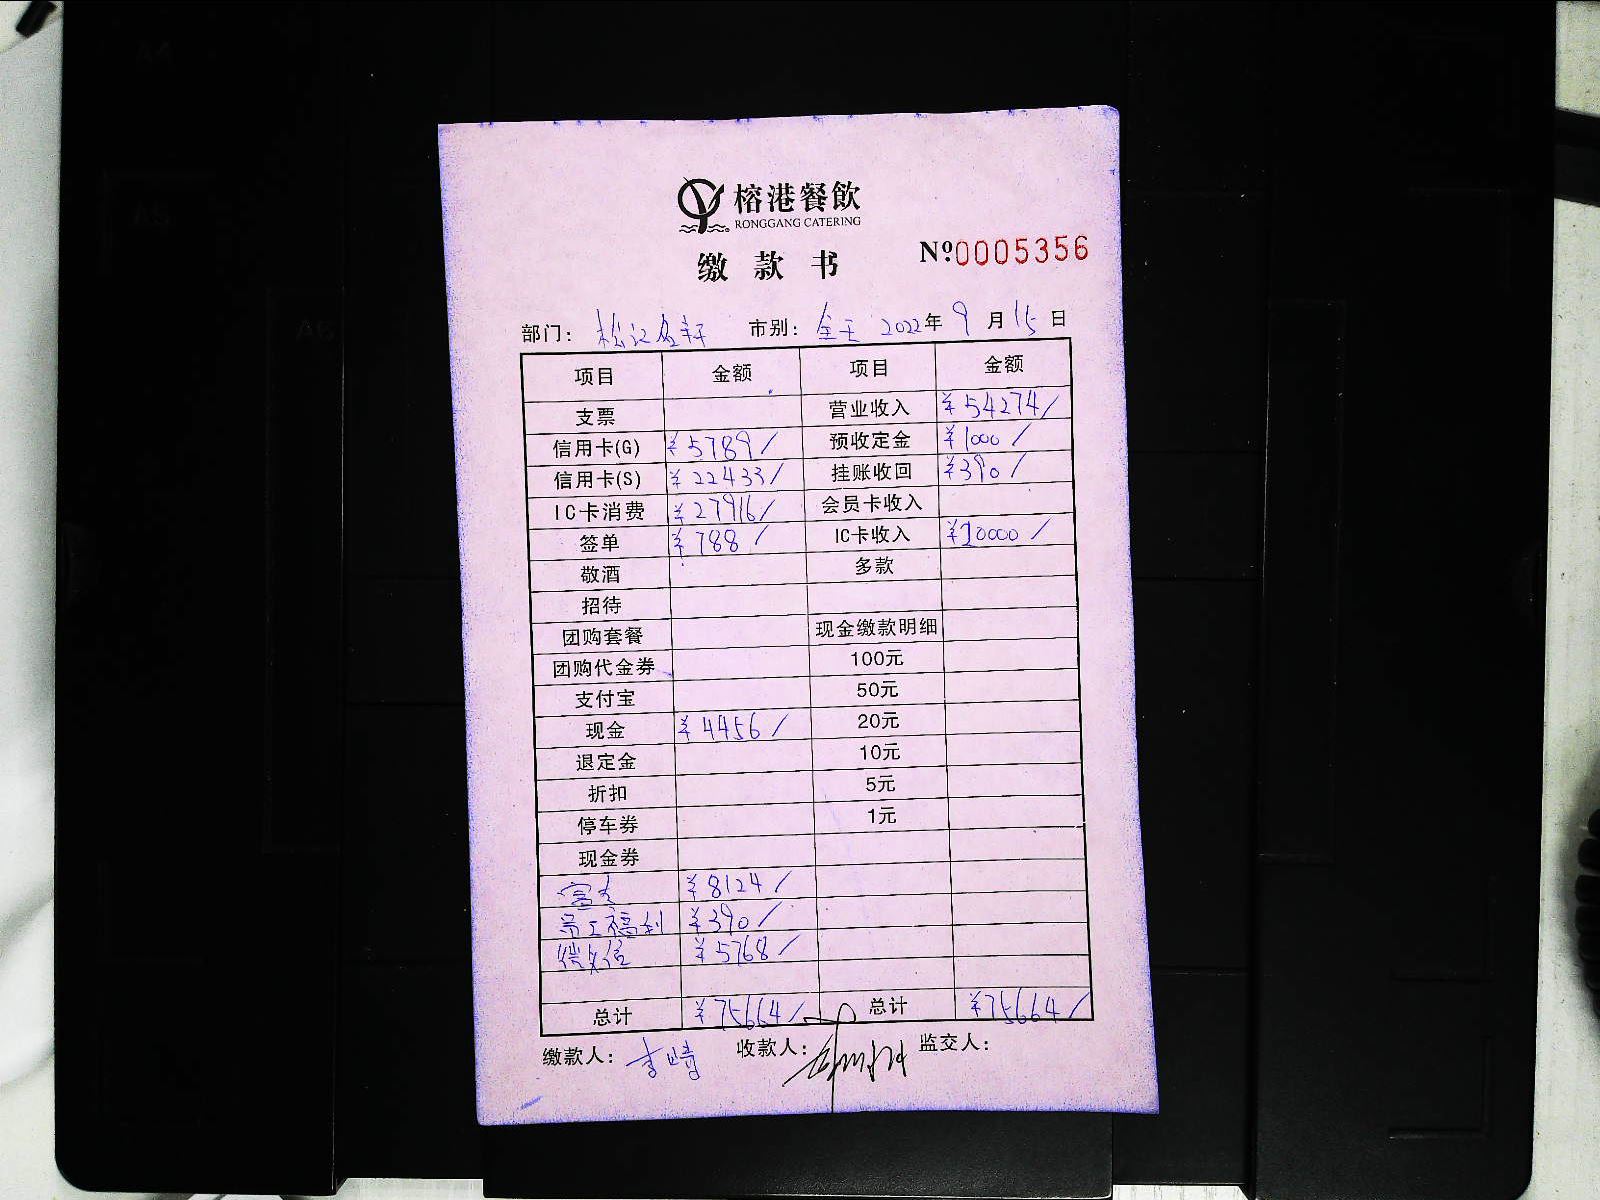 榕港餐飲
RONGGANG CATERING
缴款书 №0005356
部门: 松江 市别: 全天 2022年9月15日
项目 金额 项目 金额
支票 营业收入 ¥54274/
信用卡(G) ¥5789/ 预收定金 ¥1000/
信用卡(S) ¥22433/ 挂账收回 ¥390/
IC卡消费 ¥27916/ 会员卡收入
签单 ¥788/ IC卡收入 ¥20000/
敬酒 多款
招待
团购套餐 现金缴款明细
团购代金券 100元
支付宝 50元
现金 ¥4456/ 20元
退定金 10元
折扣 5元
停车券 1元
现金券
¥8124/
员工福利 ¥390/
微信 ¥5768/
总计 ¥75664/ 总计 ¥75664/
缴款人: 李 收款人: 监交人:
A4
A5
A6